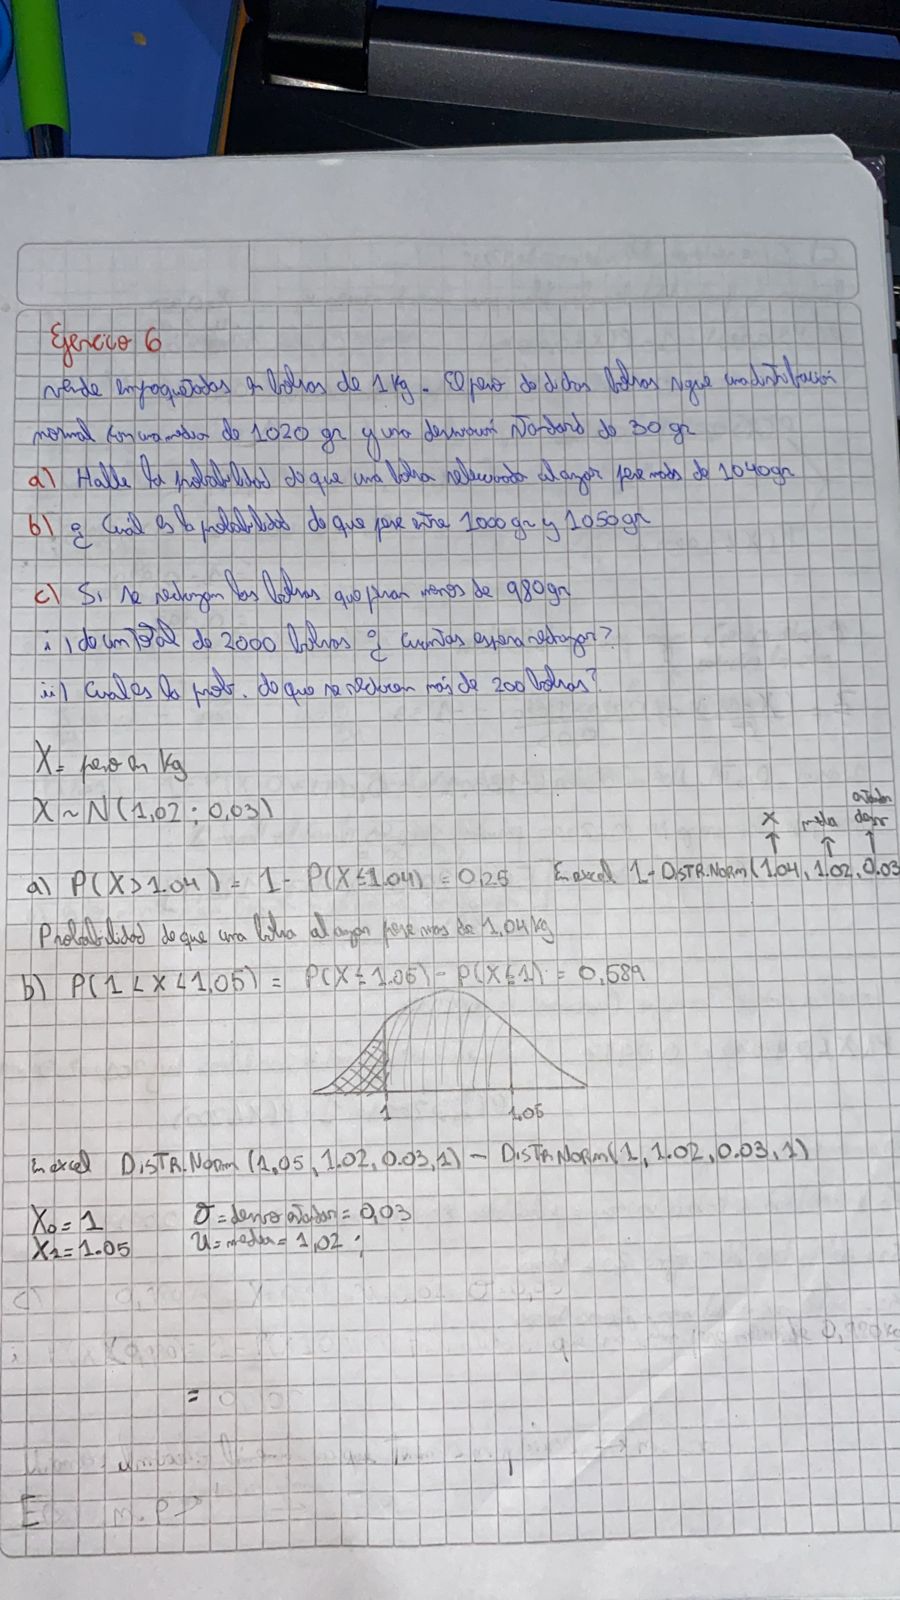 Ejercicio 6
vende empaquetados en bolsas de 1 kg. El peso de dichas bolsas sigue una distribución
normal con una media de 1020 gr y una desviación estandard de 30 gr
a) Halle la probabilidad de que una bolsa seleccionada al azar pese más de 1040gr
b) ¿ Cuál es la probabilidad de que pese entre 1000 gr y 1050gr
c) Si se rechazan las bolsas que pesan menos de 980gr
i) de un total de 2000 bolsas ¿ cuántas espera rechazar?
ii) Cual es la prob. de que se rechacen más de 200 bolsas?
X = peso en kg
X ~ N(1,02 ; 0,03)
X media desv
a) P(X > 1.04) = 1 - P(X ≤ 1.04) = 0,25 En excel 1 - DISTR.NORM(1.04, 1.02, 0.03
Probabilidad de que una bolsa al azar pese mas de 1,04 kg
b) P(1 < X < 1,05) = P(X ≤ 1.05) - P(X ≤ 1) = 0,589
1 1,05
En excel DISTR.NORM (1,05, 1.02, 0.03, 1) - DISTR.NORM(1, 1.02, 0.03, 1)
X₀ = 1 σ = = 0,03
X₁ = 1.05 u = media = 1,02